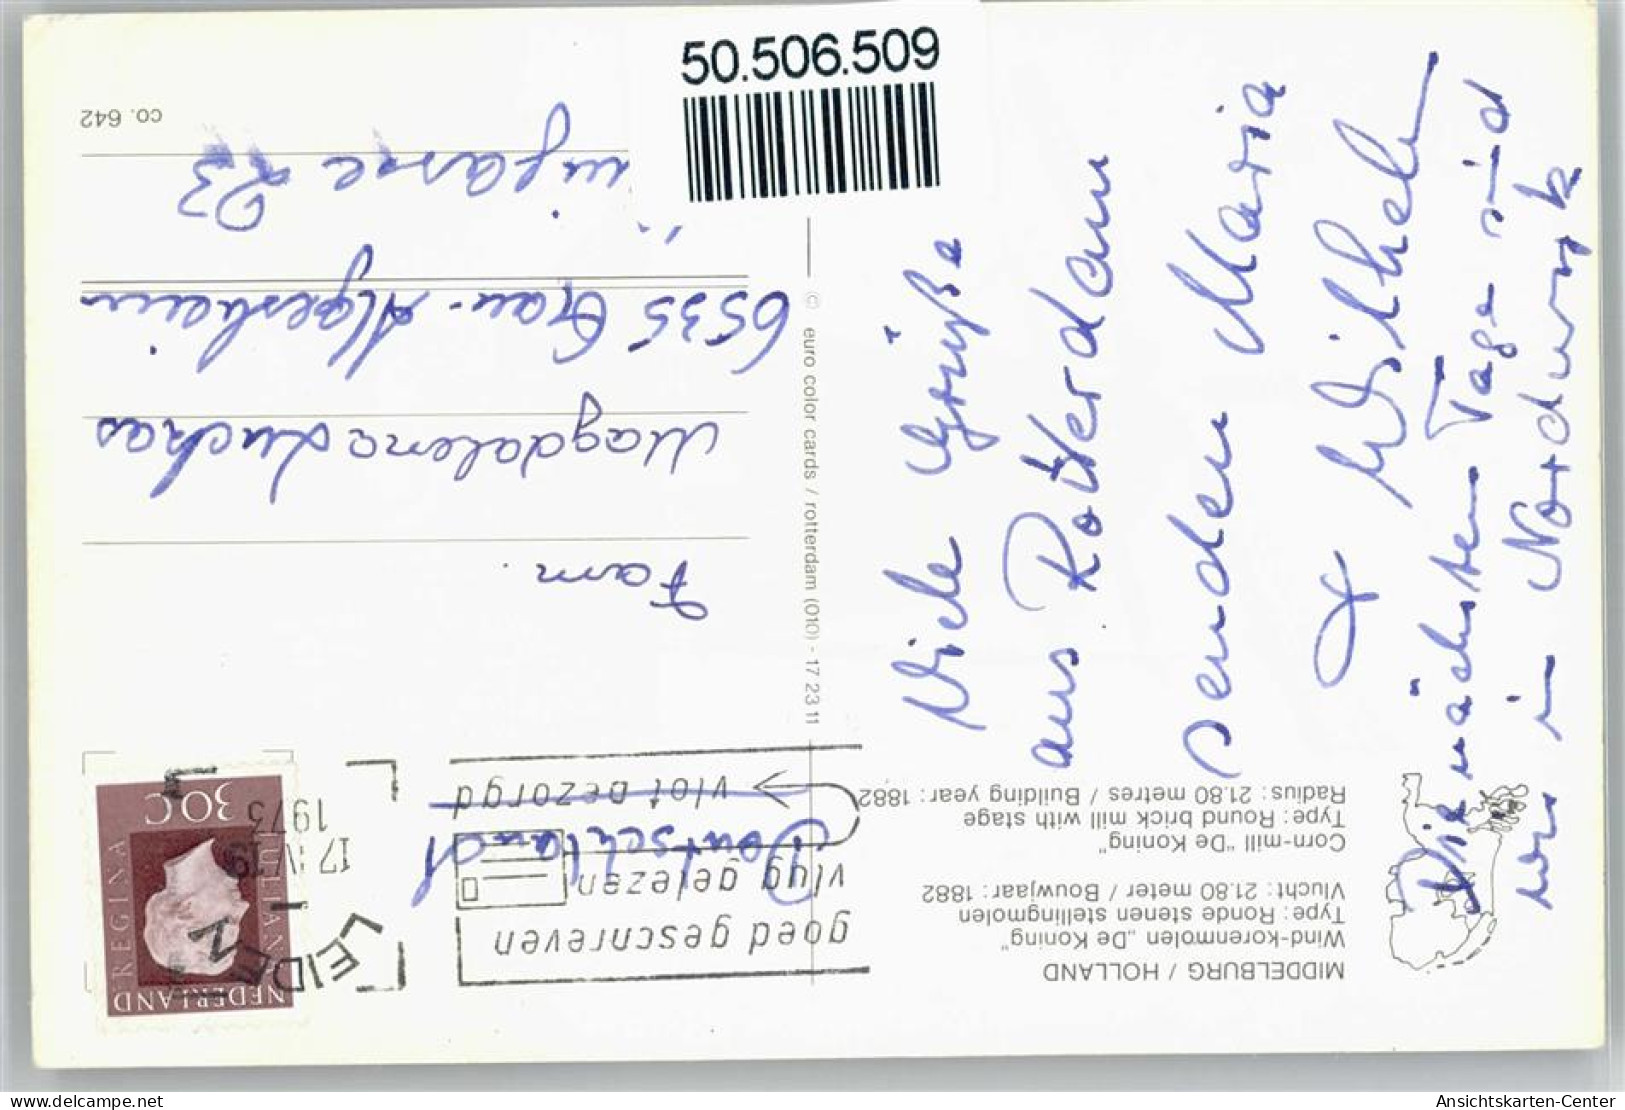 50.506.509
MIDDELBURG / HOLLAND
Wind-korenmolen „De Koning"
Type: Ronde stenen stellingmolen
Vlucht: 21.80 meter / Bouwjaar: 1882
Corn-mill "De Koning"
Type: Round brick mill with stage
Radius: 21.80 metres / Building year: 1882
Viele Grüße
aus Rotterdam
senden Maria
+ Wilhelm
Die nächsten Tage sind
wir in Nordwyk
© euro color cards / rotterdam (010) - 17 23 11
goed geschreven
vlug gelezen
vlot bezorgd
LEIDEN
17 IV 19
1973
NEDERLAND
JULIANA
REGINA
30c
Deutschland
Fam.
Magdalena Luchas
6535 Gau-Algesheim
23
co. 642
Ansichtskarten-Center